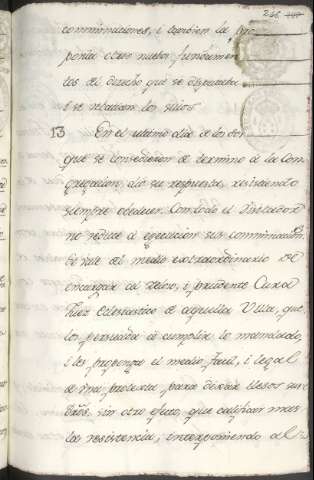 266
conminaciones, i tambien la pro
ponia otros nuevos fundamen
tos del derecho que se disputaba
i se relatan los suios
13 En el ultimo dia de los dos
que se concedieron de termino à la Con
gregacion, diò su respuesta, resistiendo
siempre obedecer. Con todo el Visitador
no reduce à egecucion sus conminaciones
se vale del medio extraordinario de
encargar al zeloso, i prudente Cura
Juez Eclesiastico de aquella Villa, que
los persuada à cumplir lo mandado,
i les proponga el medio facil, i legal
de una protexta para dexar ilesos sus
dros. sin otro efecto, que calificar mas
la resistencia, interponiendo al